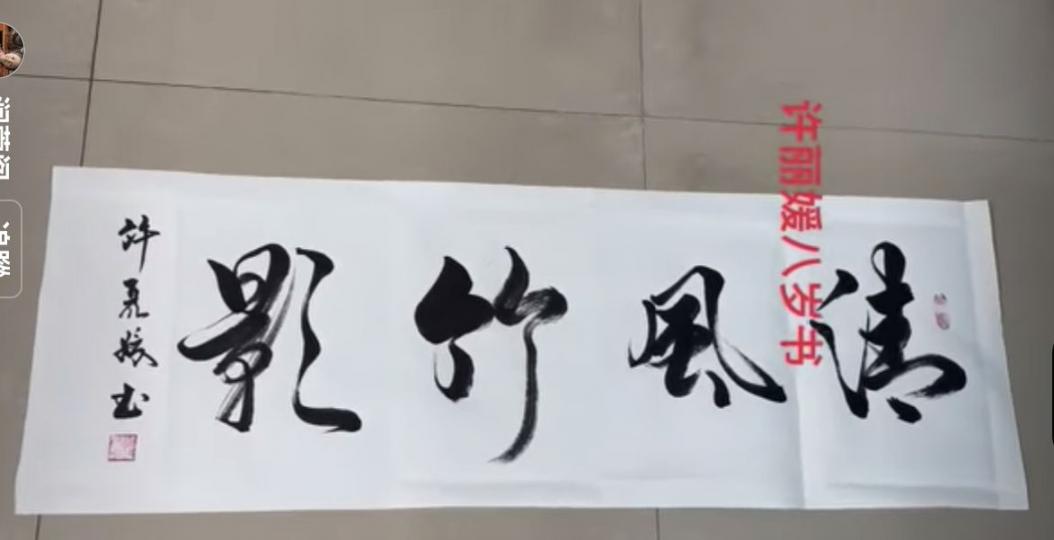 清风竹影
許麗媛书
许丽媛八岁书